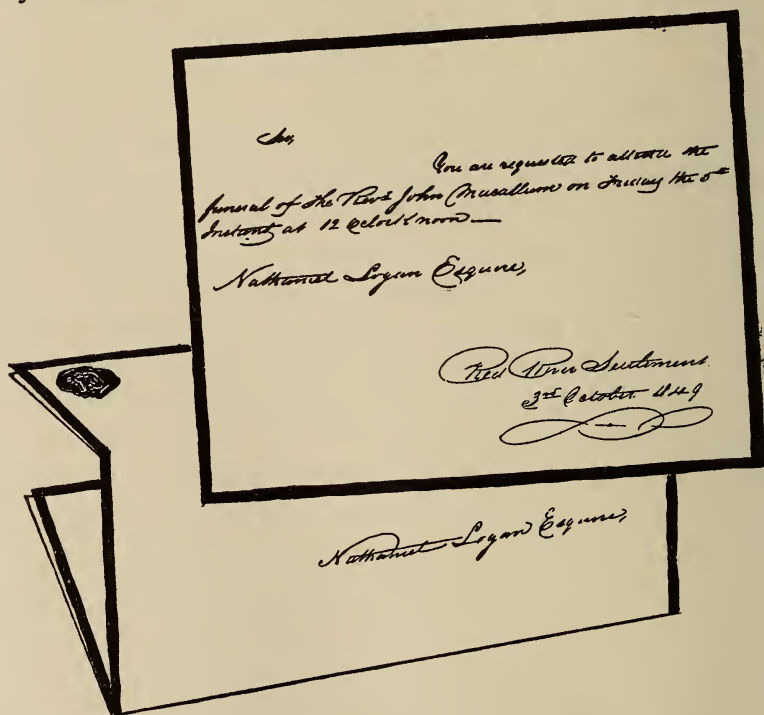 Sir,
You are requested to attend the
funeral of the Revd John Macallum on Friday the 5th
Instant at 12 o'clock noon —
Nathaniel Logan Esquire,
Red River Settlement
3rd October 1849
Nathaniel Logan Esquire,